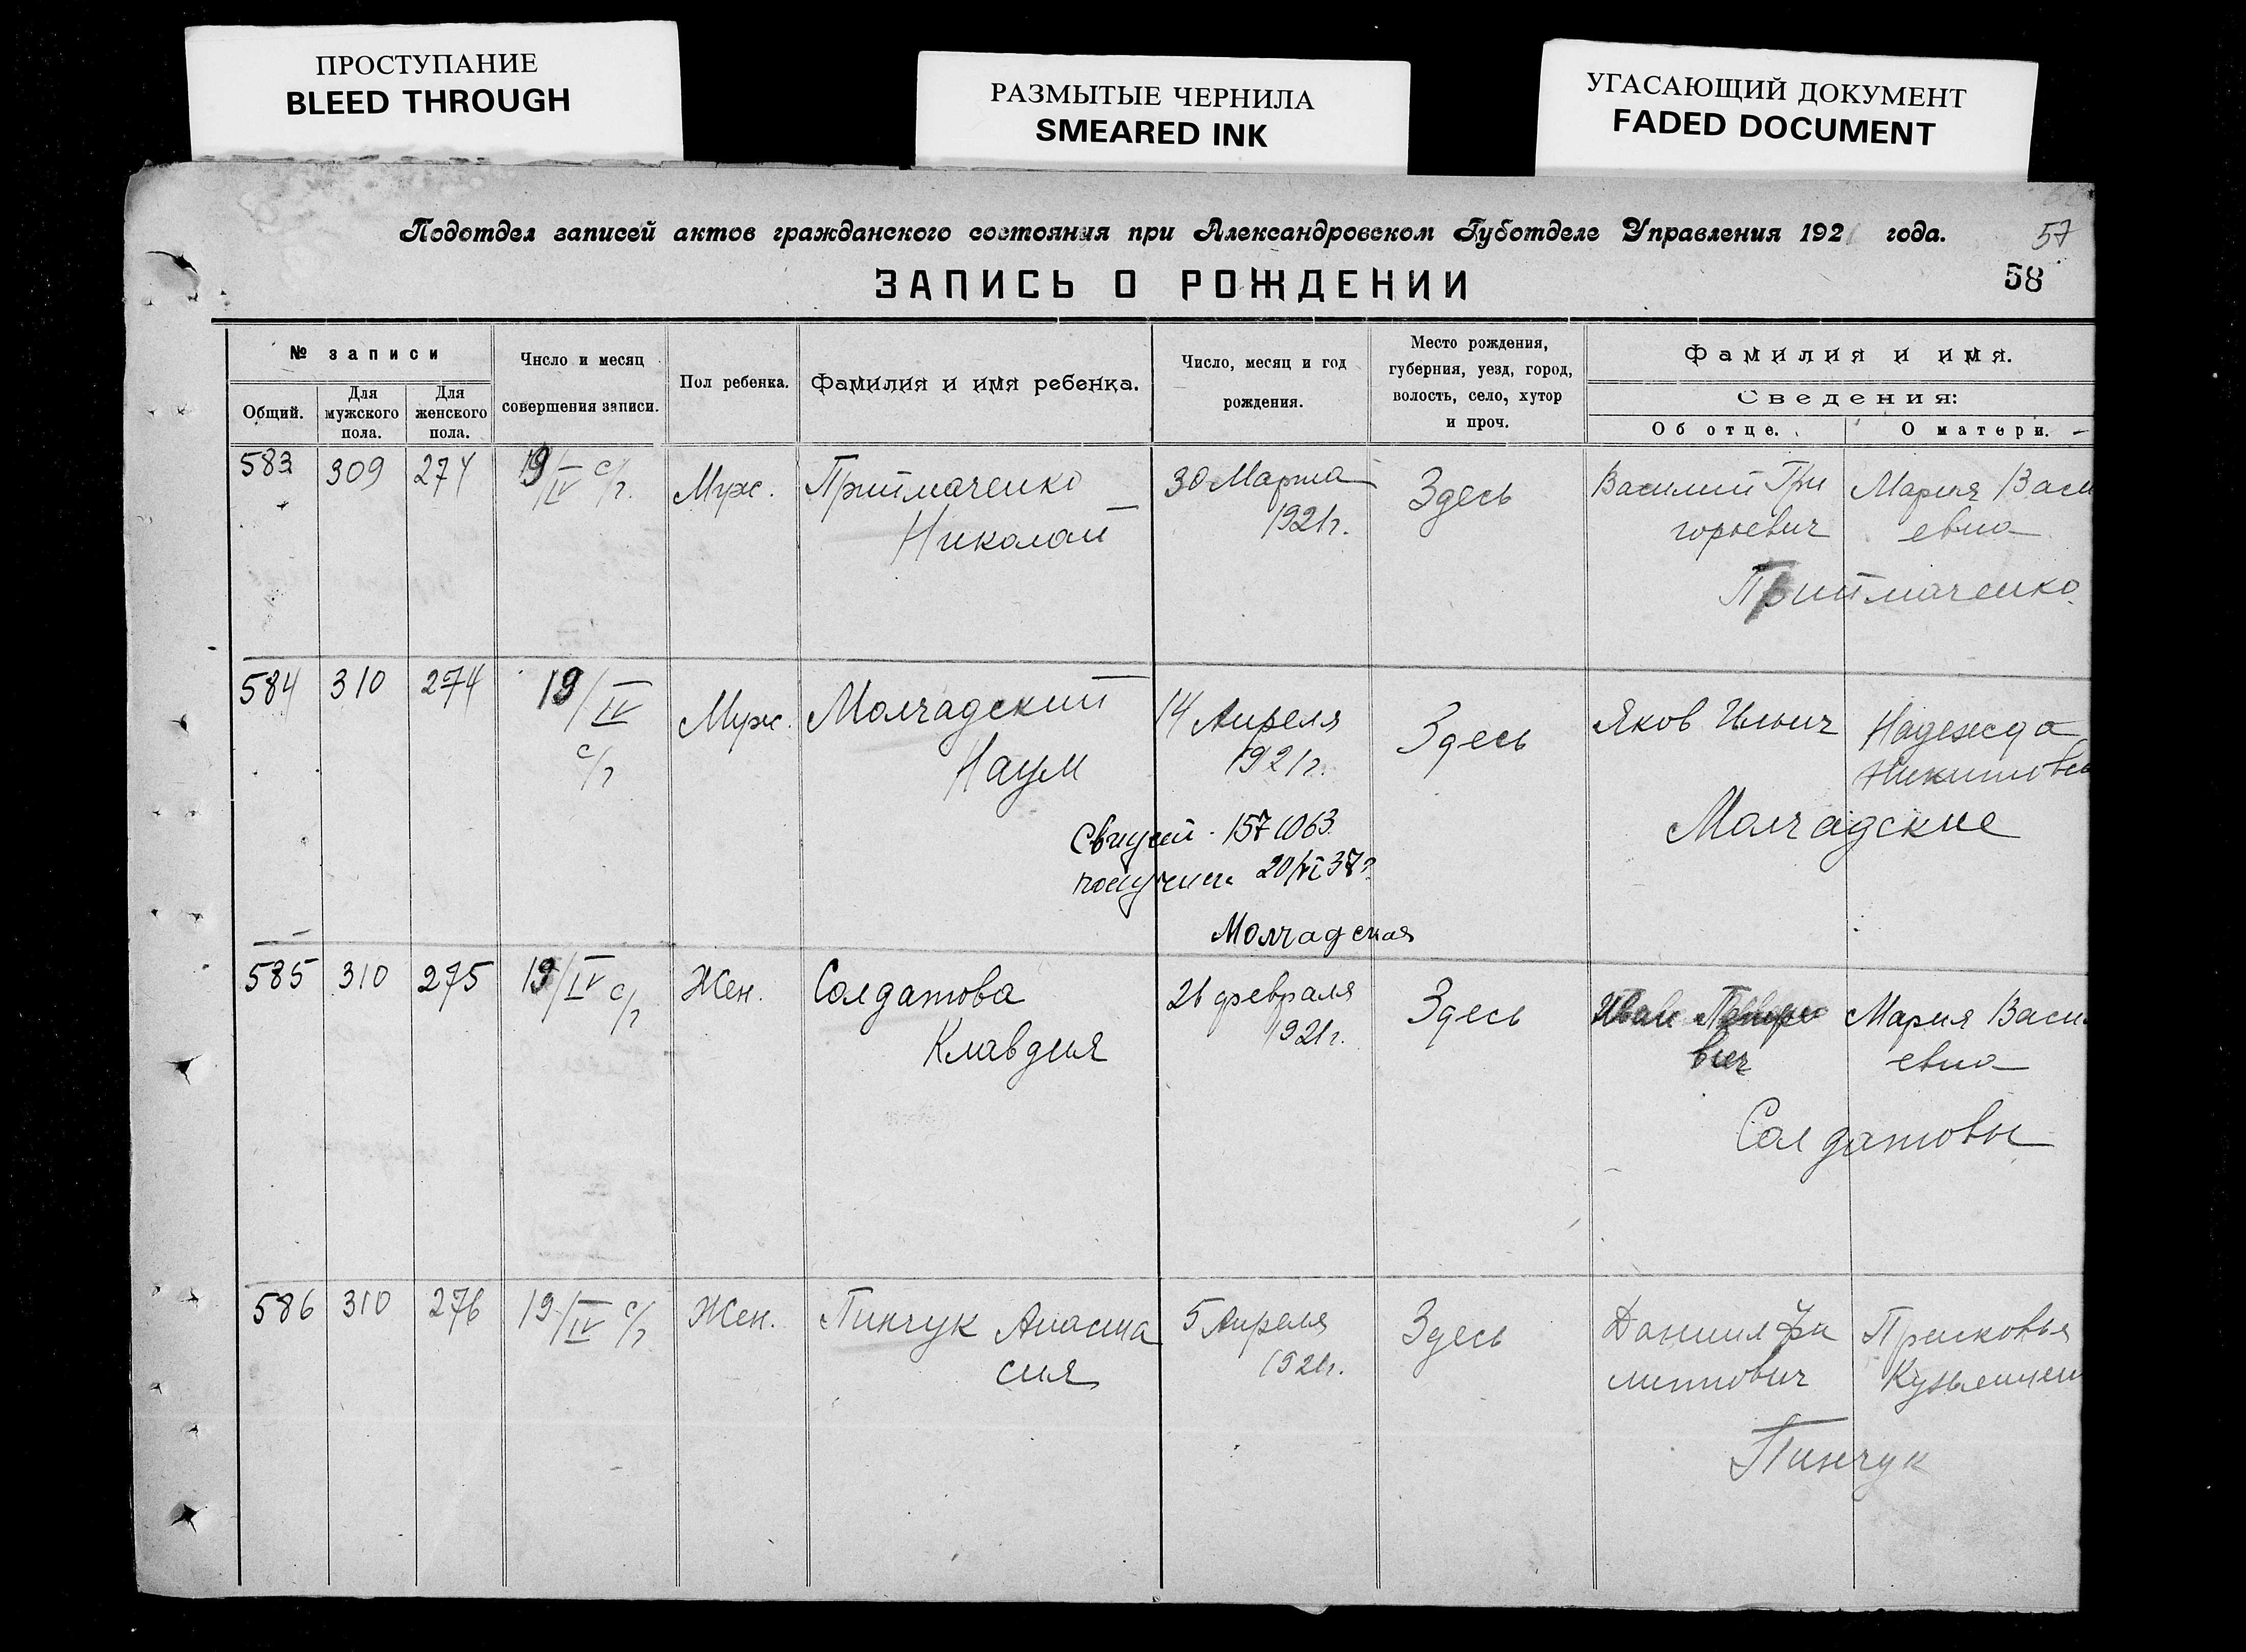 ПРОСТУПАНИЕ
BLEED THROUGH
РАЗМЫТЫЕ ЧЕРНИЛА
SMEARED INK
УГАСАЮЩИЙ ДОКУМЕНТ
FADED DOCUMENT
Подотдел записей актов гражданского состояния при Александровском Губотделе Управления 192 года.
57
58
ЗАПИСЬ О РОЖДЕНИИ
№ записи
Общий.
Для мужского пола.
Для женского пола.
Число и месяц
совершения записи.
Пол ребенка.
Фамилия и имя ребенка.
Число, месяц и год
рождения.
Место рождения,
губерния, уезд, город,
волость, село, хутор
и проч.
Фамилия и имя.
Сведения:
Об отце.
О матери.
583 309 274 19/IV с/г. Муж. Прийmаченко 30 Марта Здесь Василий Гри Мария Васи
Николай 1921г. горьевич евна
Прийmаченко
584 310 274 19/IV Муж. Молчадский 14 Апреля Здесь Яков Ильич Надежда
с/г Наум 1921г. Никитовн
Молчадские
157063
получила 20/VI 37г.
Молчадская
585 310 275 19/IV с/г Жен. Солдатова 26 февраля Здесь Иван Петро Мария Васи
Клавдия 1921г. вич евна
Солдатовы
586 310 276 19/IV с/г Жен. Пинчук Анаста 5 Апреля Здесь Даниил Фи Прасковья
сия 1921г. липпович
Пинчук